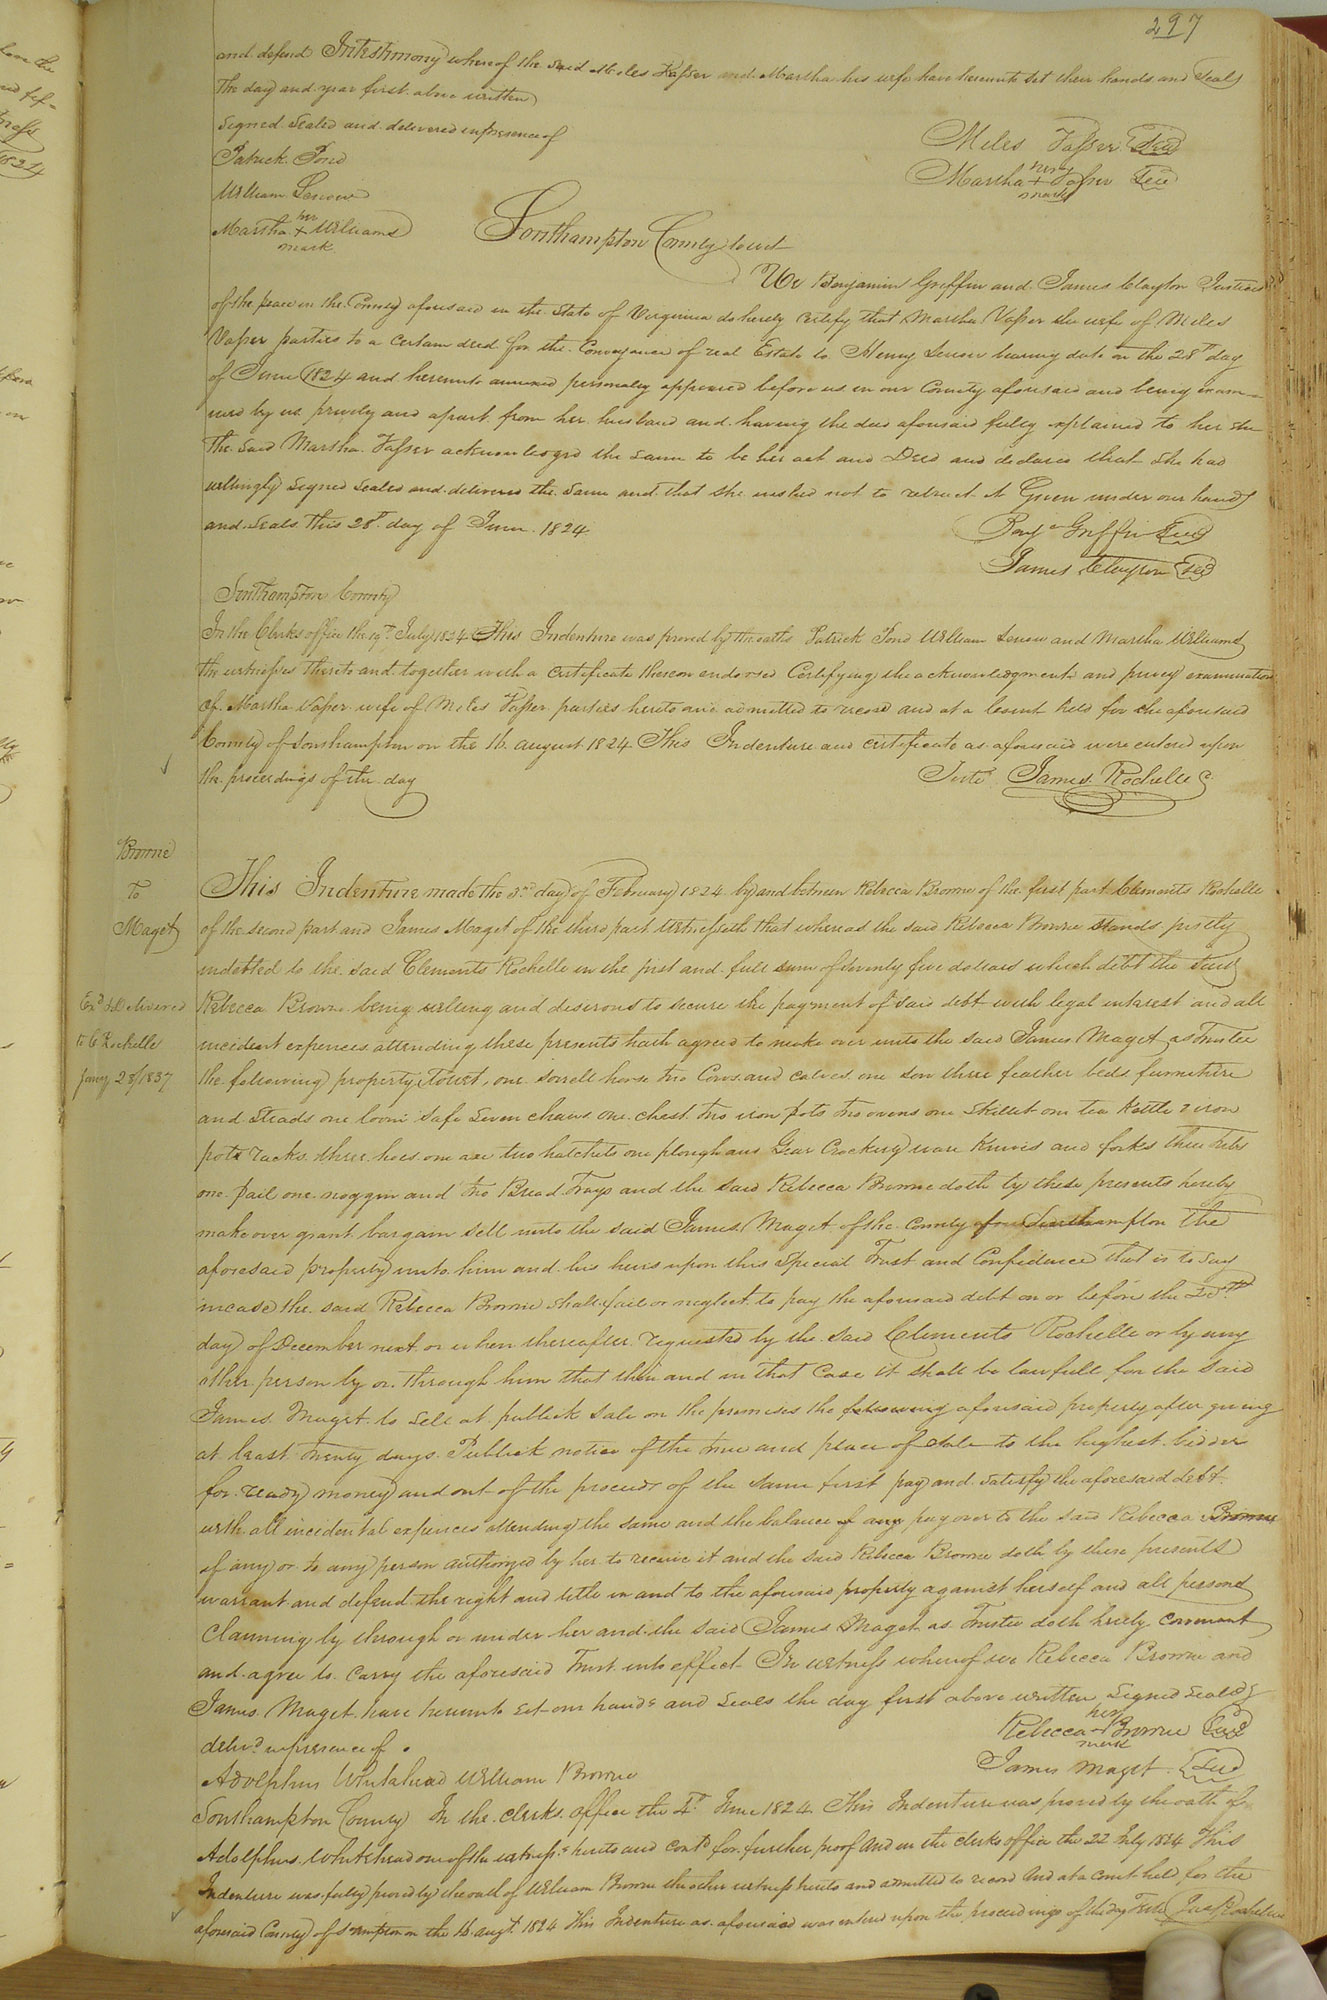 297
and defend Intestimony whereof the said Miles Vasser and Martha his wife have hereunto set their hands and Seals
the day and year first above written
Signed Sealed and delivered in presence of
Miles Vasser Seal
Patrick Pond
Martha her + mark Vasser Seal
William
Martha her + mark Williams
Southampton County to wit
We Benjamin Griffin and James Clayton Justices
of the peace in the County aforesaid in the State of Virginia do hereby certify that Martha Vasser the wife of Miles
Vasser parties to a certain deed for the Conveyance of real Estate to Henry bearing date on the 28th day
of June 1824 and hereunto annexed personaly appeared before us in our County aforesaid and being exam-
ined by us privily and apart from her husband and having the deed aforesaid fully explained to her she
the said Martha Vasser acknowledged the same to be her act and Deed and declared that she had
willingly signed sealed and delivered the same and that she wished not to retract it Given under our hands
and Seals this 28th day of June 1824
Benja Griffin Seal
James Clayton Seal
Southampton County
In the Clerks office the 19th July 1824 This Indenture was proved by the oaths Patrick Pond William and Martha Williams
the witnesses thereto and together with a certificate thereon endorsed Certifying the acknowledgment and privy examination
of Martha Vasser wife of Miles Vasser parties hereto and admitted to record and at a Court held for the aforesaid
County of Southampton on the 16 august 1824 This Indenture and certificate as aforesaid were entered upon
the proceedings of the day
Teste James Rochelle C
Browne
To
Maget
Exd & delivered
to C Rochelle
Jany 28/1837
This Indenture made the 3rd day of February 1824 by and between Rebecca Browne of the first part Clements Rochelle
of the second part and James Maget of the third part Witnesseth that whereas the said Rebecca Browne stands justly
indebted to the said Clements Rochelle in the just and full sum of seventy five dollars which debt the said
Rebecca Browne being willing and desirous to secure the payment of said debt with legal interest and all
incident expences attending these presents hath agreed to make over unto the said James Maget as Trustee
the following property Towit, one sorrell horse two Cows and calves one sow three feather beds furniture
and steads one loom safe seven chairs one chest two iron pots two ovens one skillet one tea kettle 2 iron
pott racks three hoes one axe two hatchets one plough and Gear Crockery ware knives and forks three tubs
one pail one noggin and two Bread Trays and the said Rebecca Browne doth by these presents hereby
make over grant bargain sell unto the said James Maget of the County of Southampton the
aforesaid property unto him and his heirs upon this Special Trust and Confidence that is to say
incase the said Rebecca Browne shall fail or neglect to pay the aforesaid debt on or before the
day of December next or when thereafter requested by the said Clements Rochelle or by any
other person by or through him that then and in that case it shall be lawfull for the said
James Maget to sell at publick sale on the premises the following aforesaid property after giving
at least twenty days Publick notice of the time and place of sale to the highest bidder
for ready money and out of the proceeds of the same first pay and satisfy the aforesaid debt
with all incidental expences attending the same and the balance if any pay over to the said Rebecca Browne
if any or to any person authorized by her to receive it and the said Rebecca Browne doth by these presents
warrant and defend the right and title in and to the aforesaid property against herself and all persons
Claiming by through or under her and the said James Maget as Trustee doth hereby covenant
and agree to carry the aforesaid Trust into effect In witness whereof we Rebecca Browne and
James Maget have hereunto set our hands and seals the day first above written Signed Seald &
delivd in presence of
Rebecca her + mark Browne Seal
Adolphus Whitehead William Browne
James Maget Seal
Southampton County In the clerks office the 4th June 1824 This Indenture was proved by the oath of
Adolphus Whitehead one of the witness's hereto and contd for further proof And in the clerks office the 22 July 1824 This
Indenture was fully proved by the oath of William Browne the other witness hereto and admitted to record And at a Court held for the
aforesaid County of Southampton on the 16 augt 1824 This Indenture as aforesaid was entered upon the proceedings of the day Teste Jas Rochelle